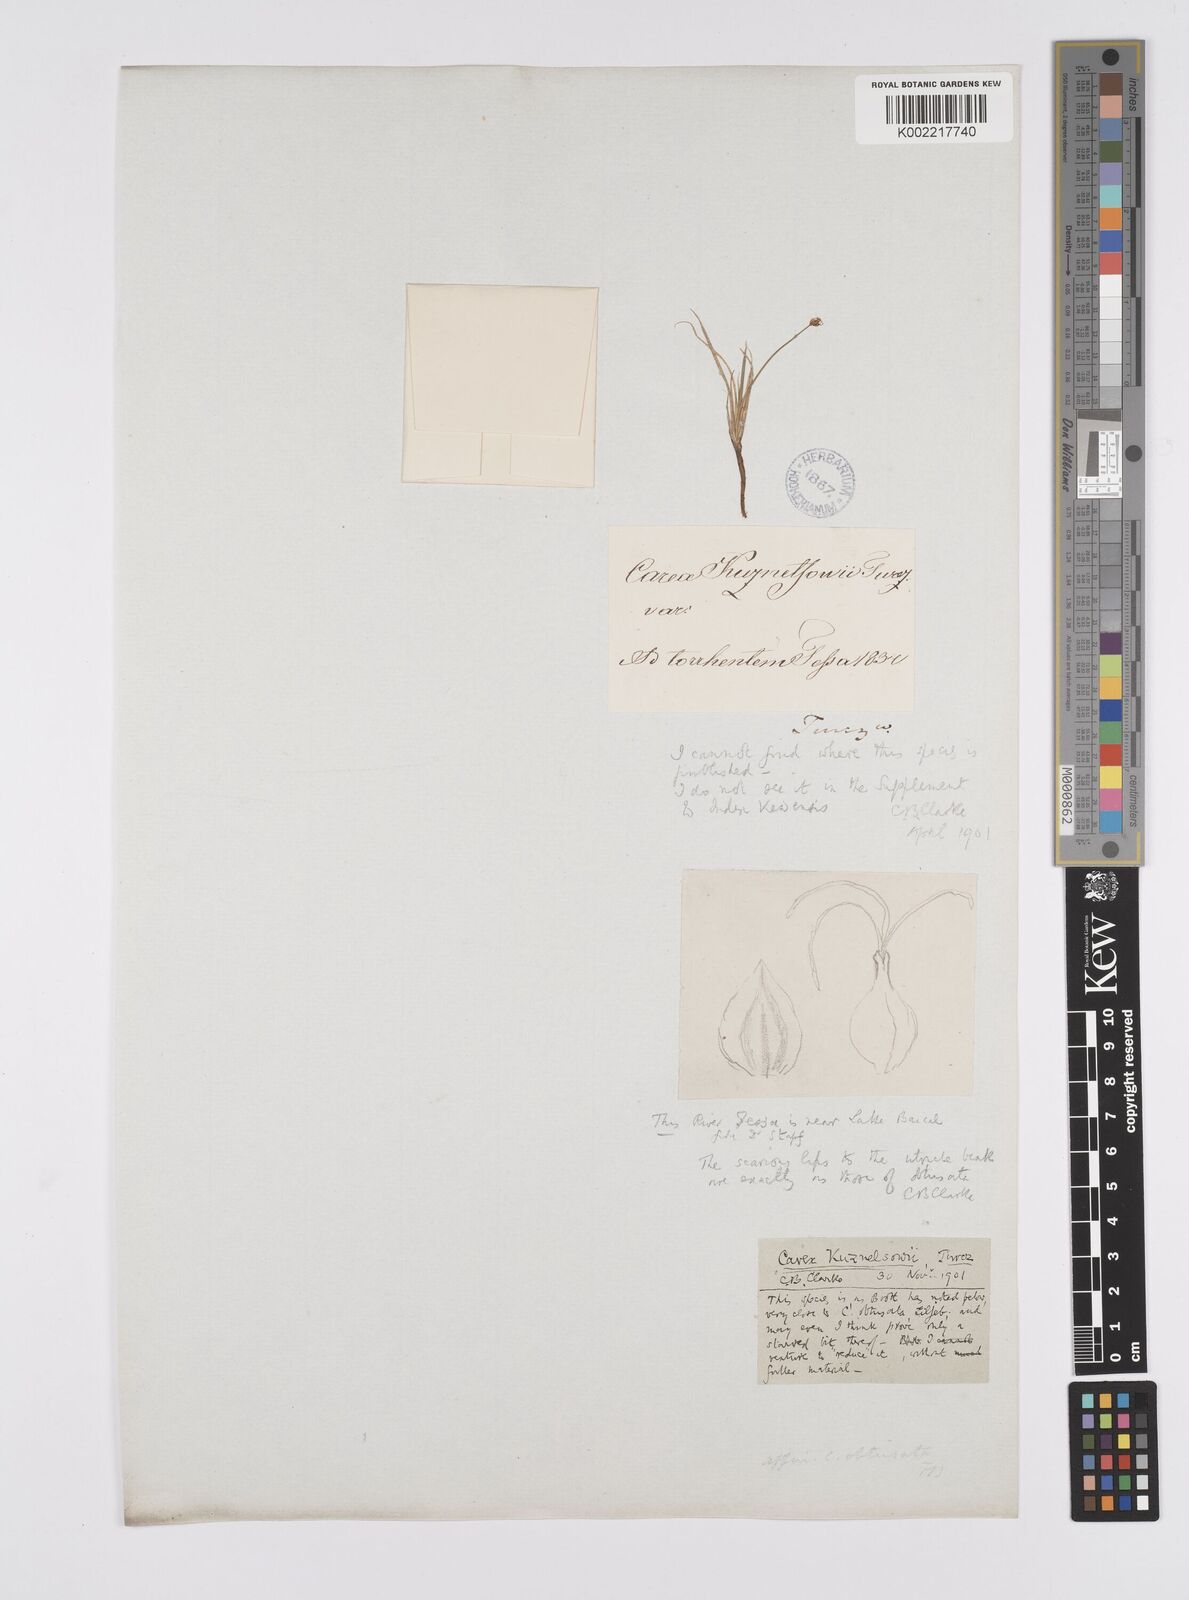 ROYAL BOTANIC GARDENS KEW
K002217740
HERBARIUM HOOKERIANUM
1867.
Carex Kuznetsowii Turcz.
var:
Ad torrhentem Tessa 183
Turczw.
I cannot find where this species is
published –
I do not see it in the Supplement
to Index Kewensis CBClarke
April 1901
This River Tessa is near Lake Baical
fide Dr Stapf
The scarious lips to the utricle beak
are exactly as those of obtusata
CBClarke
Carex Kuznelsowii, Turcz
C.B. Clarke 30 Novr. 1901
This species is as Boott has noted below,
very close to C. obtusata, Liljeb; and
may even I think prove only a
starved bit thereof – But I cannot
venture to reduce it, without much
fuller material –
affin. C. obtusata
inches
centimeters
Density
Don Williams
M000862
Kew
Royal Botanic Gardens
0 1 2 3 4 5 6 7 8 9 10
cm
copyright reserved